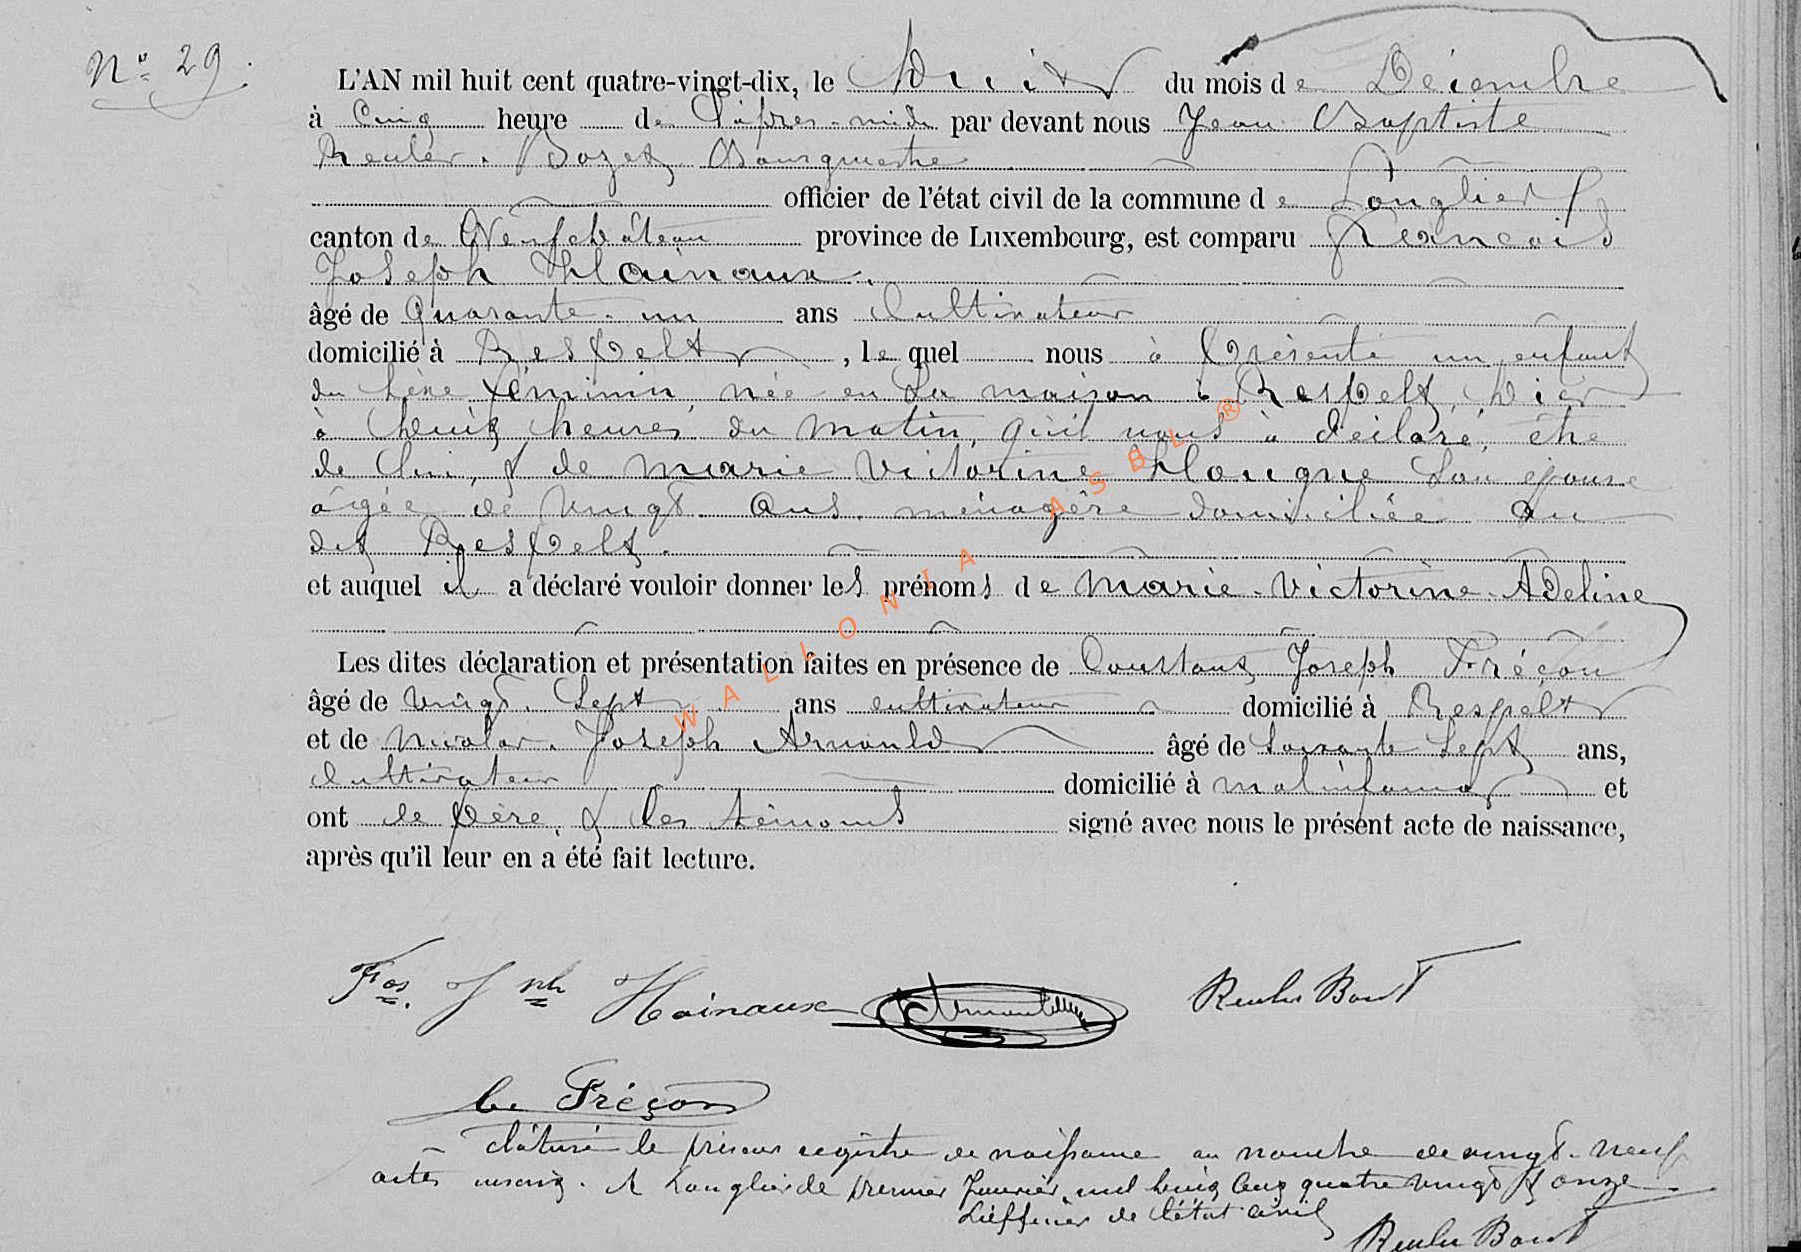 N° 29.
L'AN mil huit cent quatre-vingt-dix, le huit du mois de Décembre
à Cinq heure de l'après-midi par devant nous Jean Baptiste
Reuler-Bozet Bourgmestre
officier de l'état civil de la commune de Longlier
canton de Neufchâteau province de Luxembourg, est comparu Francois
Joseph Hainaux.
âgé de Quarante-un ans Cultivateur
domicilié à Respelt, le quel nous à présenté un enfant
du sèxe féminin, née en sa maison à Respelt, hier
à huit heures du matin, qu'il nous à déclaré, être
de lui, & de Marie Victorine Hougne son épouse
âgée de vingt- ans. ménagère domiciliée au
dit Respelt.
et auquel il a déclaré vouloir donner les prénoms de Marie-Victorine-Adeline
Les dites déclaration et présentation faites en présence de Constant Joseph Fréçon
âgé de vingt-sept ans cultivateur domicilié à Respelt
et de Nicolas-Joseph Arnould âgé de soixante sept ans,
Cultivateur domicilié à Molinfaing et
ont le père, & les témoins signé avec nous le présent acte de naissance,
après qu'il leur en a été fait lecture.
Fos. Jph Hainaux Reuler Bozet
C. Fréçon
clôturé le présent registre de naissance au nombre de vingt-neuf
actes inscrits. A Longlier le premier Janvier mil huit cent quatre vingt & onze
L'officier de l'état civil
Reuler Bozet
WALLONIA ASBL ®